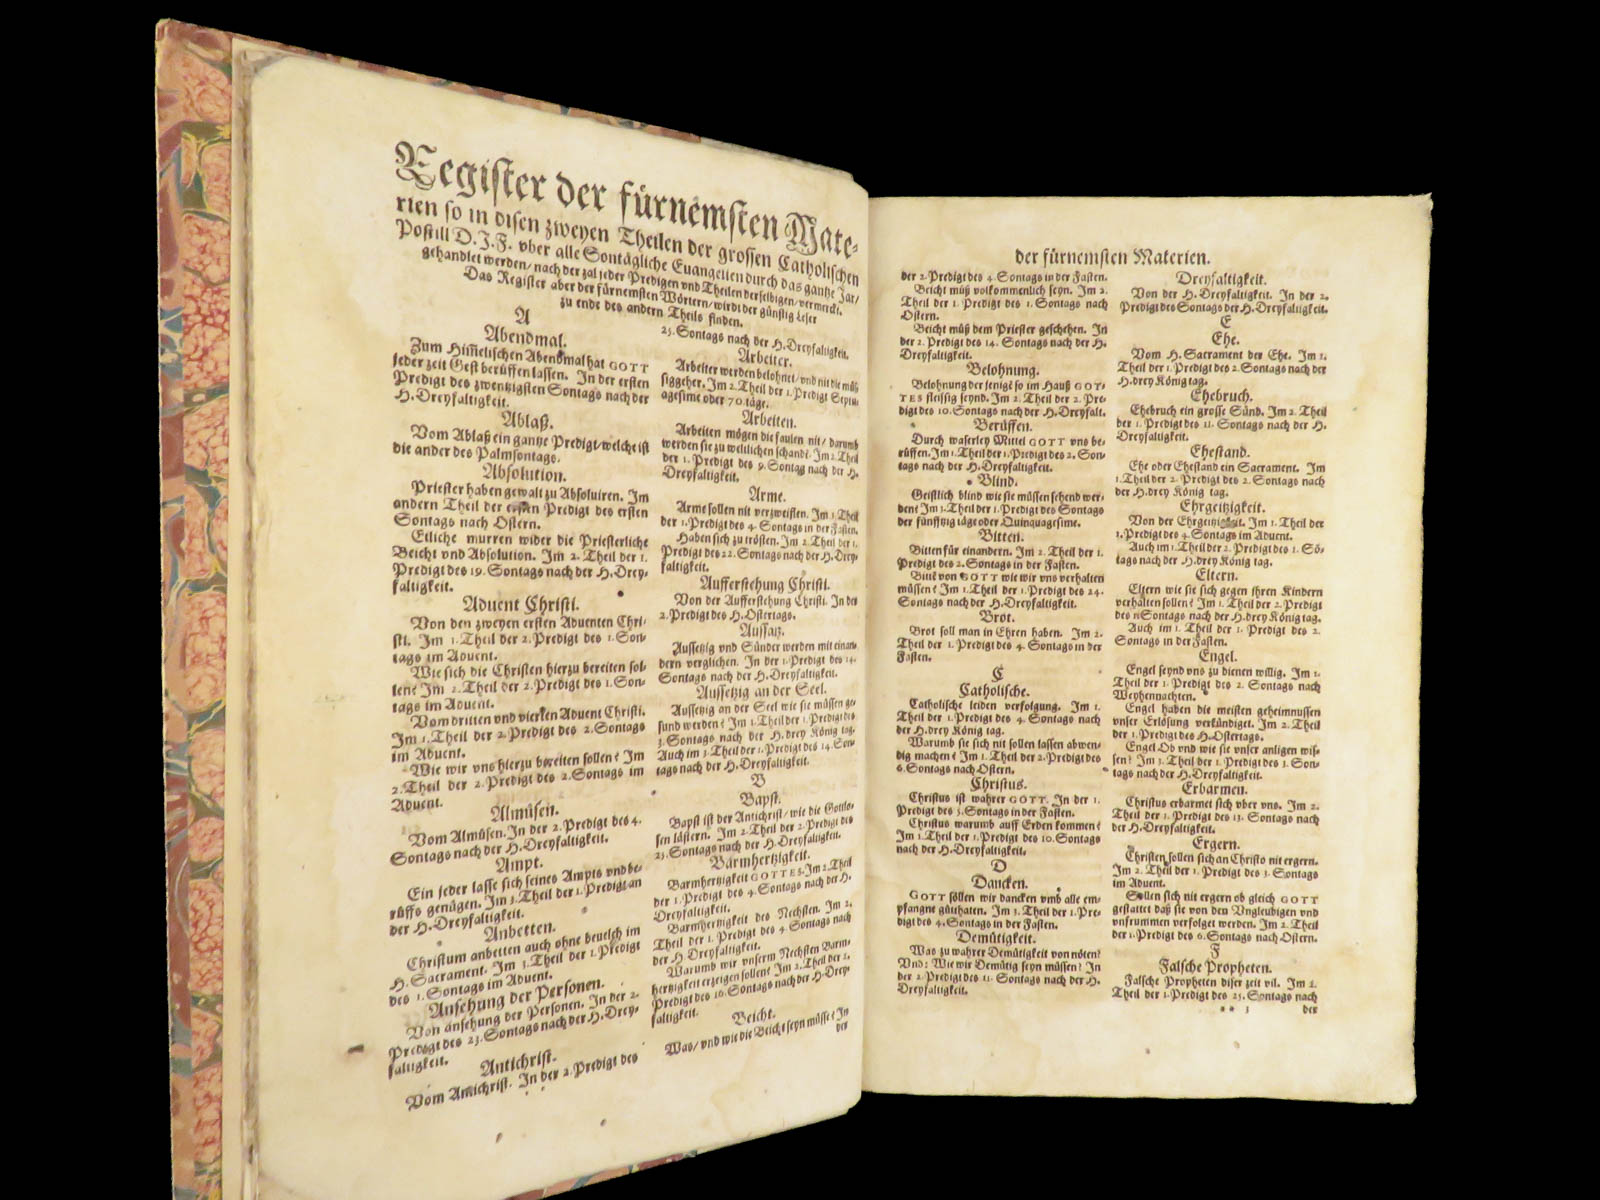 Register der fürnemsten Mate-
rien so in disen zweyen Theilen der grossen Catholischen
Postill D. J. F. vber alle Sontägliche Euangelien durch das gantze Jar/
gehandlet werden/ nach der zal jeder Predigen vnd Theilen derselbigen/ vermerckt.
Das Register aber der fürnemsten Wörtern/ wirdt der günstig Leser
zu ende des andern Theils finden.
A
Abendmal.
Zum Him̃elischen Abendmal hat GOTT
jeder zeit Gest berüffen lassen. In der ersten
Predigt des zwentzigsten Sontags nach der
H. Dreyfaltigkeit.
Ablaß.
Vom Ablaß ein gantze Predigt/ welche ist
die ander des Palmsontags.
Absolution.
Priester haben gewalt zu Absoluiren. Im
andern Theil der ersten Predigt des ersten
Sontags nach Ostern.
Etliche murren wider die Priesterliche
Beicht vnd Absolution. Im 2. Theil der 1.
Predigt des 19. Sontags nach der H. Drey-
faltigkeit.
Aduent Christi.
Von den zweyen ersten Aduenten Chri-
sti. Im 1. Theil der 2. Predigt des 1. Son-
tags im Aduent.
Wie sich die Christen hierzu bereiten sol-
len? Im 2. Theil der 2. Predigt des 1. Son-
tags im Aduent.
Vom dritten vnd vierten Aduent Christi.
Im 1. Theil der 2. Predigt des 2. Sontags
im Aduent.
Wie wir vns hierzu bereiten sollen? Im
2. Theil der 2. Predigt des 2. Sontags im
Aduent.
Almüsen.
Vom Almüsen. In der 2. Predigt des 4.
Sontags nach der H. Dreyfaltigkeit.
Ampt.
Ein jeder lasse sich seines Ampts vnd be-
rüffs genügen. Im 3. Theil der 1. Predigt an
der H. Dreyfaltigkeit.
Anbetten.
Christum anbetten auch ohne beuelch im
H. Sacrament. Im 3. Theil der 1. Predigt
des 1. Sontags im Aduent.
Ansehung der Personen.
Von ansehung der Personen. In der 2.
Predigt des 23. Sontags nach der H. Drey-
faltigkeit.
Antichrist.
Vom Antichrist. In der 2. Predigt des
25. Sontags nach der H. Dreyfaltigkeit.
Arbeiter.
Arbeiter werden belohnet/ vnd nit die müs-
siggeher. Im 2. Theil der 1. Predigt Septu-
agesime oder 70. täge.
Arbeiten.
Arbeiten mögen die faulen nit/ darumb
werden sie zu weltlichen schandt. Im 2. Theil
der 1. Predigt des 9. Sontag nach der H.
Dreyfaltigkeit.
Arme.
Arme sollen nit verzweiflen. Im 1. Theil
der 1. Predigt des 4. Sontags in der Fasten.
Haben sich zu trösten. Im 2. Theil der 1.
Predigt des 22. Sontags nach der H. Drey-
faltigkeit.
Aufferstehung Christi.
Von der Aufferstehung Christi. In der
2. Predigt des H. Ostertags.
Aussatz.
Aussetzig vnd Sünder werden mit einan-
dern verglichen. In der 1. Predigt des 14.
Sontags nach der H. Dreyfaltigkeit.
Aussetzig an der Seel.
Aussetzig an der Seel wie sie müssen ge-
sund werden? Im 1. Theil der 1. Predigt des
3. Sontags nach der H. drey König tag.
Auch im 3. Theil der 1. Predigt des 14. Son-
tags nach der H. Dreyfaltigkeit.
B
Bapst.
Bapst ist der Antichrist/ wie die Gottlo-
sen lästern. Im 2. Theil der 2. Predigt des
25. Sontags nach der H. Dreyfaltigkeit.
Barmhertzigkeit.
Barmhertzigkeit GOTTES. Im 2. Theil
der 1. Predigt des 4. Sontags nach der H.
Dreyfaltigkeit.
Barmhertzigkeit des Nechsten. Im 2.
Theil der 1. Predigt des 4. Sontags nach
der H. Dreyfaltigkeit.
Warumb wir vnserm Nechsten Barm-
hertzigkeit erzeigen sollen? Im 2. Theil der 2.
Predigt des 16. Sontags nach der H. Drey-
faltigkeit.
Beicht.
Was/ vnd wie die Beicht seyn müsse? In
der
der fürnemsten Materien.
der 2. Predigt des 4. Sontags in der Fasten.
Beicht müß volkommenlich seyn. Im 2.
Theil der 1. Predigt des 1. Sontags nach
Ostern.
Beicht müß dem Priester geschehen. In
der 2. Predigt des 14. Sontags nach der H.
Dreyfaltigkeit.
Belohnung.
Belohnung der jenigē so im Hauß GOT-
TES fleissig seynd. Im 2. Theil der 2. Pre-
digt des 10. Sontags nach der H. Dreyfalt.
Berüffen.
Durch waserley Mittel GOTT vns be-
rüffen. Im 1. Theil der 1. Predigt des 2. Son-
tags nach der H. Dreyfaltigkeit.
Blind.
Geistlich blind wie sie müssen sehend wer-
den? Im 3. Theil der 1. Predigt des Sontags
der fünfftzig täge oder Quinquagesime.
Bitten.
Bitten für einandern. Im 2. Theil der 1.
Predigt des 2. Sontags in der Fasten.
Bitē von GOTT wie wir vns verhalten
müssen? Im 1. Theil der 1. Predigt des 24.
Sontags nach der H. Dreyfaltigkeit.
Brot.
Brot soll man in Ehren haben. Im 2.
Theil der 1. Predigt des 4. Sontags in der
Fasten.
C
Catholische.
Catholische leiden verfolgung. Im 1.
Theil der 1. Predigt des 4. Sontags nach
der H. drey König tag.
Warumb sie sich nit sollen lassen abwen-
dig machen? Im 1. Theil der 2. Predigt des
6. Sontags nach Ostern.
Christus.
Christus ist wahrer GOTT. In der 1.
Predigt des 5. Sontags in der Fasten.
Christus warumb auff Erden kommen?
Im 1. Theil der 1. Predigt des 10. Sontags
nach der H. Dreyfaltigkeit.
D
Dancken.
GOTT söllen wir dancken vmb alle em-
pfangne gütthaten. Im 1. Theil der 1. Pre-
digt des 4. Sontags in der Fasten.
Demütigkeit.
Was zu wahrer Demütigkeit von nöten?
Vnd: Wie wir Demütig seyn müssen? In
der 2. Predigt des 11. Sontags nach der H.
Dreyfaltigkeit.
Dreyfaltigkeit.
Von der H. Dreyfaltigkeit. In der 2.
Predigt des Sontags der H. Dreyfaltigkeit.
E
Ehe.
Vom H. Sacrament der Ehe. Im 1.
Theil der 1. Predigt des 2. Sontags nach der
H. drey König tag.
Ehebruch.
Ehebruch ein grosse Sünd. Im 2. Theil
der 1. Predigt des 11. Sontags nach der H.
Dreyfaltigkeit.
Ehestand.
Ehe oder Ehestand ein Sacrament. Im
1. Theil der 2. Predigt des 2. Sontags nach
der H. drey König tag.
Ehrgeitzigkeit.
Von der Ehrgeitzigkeit. Im 1. Theil der
1. Predigt des 4. Sontags im Aduent.
Auch im 1. Theil der 2. Predigt des 1. Sō-
tags nach der H. drey König tag.
Eltern.
Eltern wie sie sich gegen ihren Kindern
verhalten sollen? Im 1. Theil der 2. Predigt
des 1. Sontags nach der H. drey König tag.
Auch im 1. Theil der 1. Predigt des 2.
Sontags in der Fasten.
Engel.
Engel seynd vns zu dienen willig. Im 1.
Theil der 1. Predigt des 2. Sontags nach
Weyhennachten.
Engel haben die meisten geheimnussen
vnser Erlösung verkündiget. Im 2. Theil
der 1. Predigt des H. Ostertags.
Engel Ob vnd wie sie vnser anligen wis-
sen? Im 3. Theil der 1. Predigt des 3. Son-
tags nach der H. Dreyfaltigkeit.
Erbarmen.
Christus erbarmet sich vber vns. Im 2.
Theil der 1. Predigt des 13. Sontags nach
der H. Dreyfaltigkeit.
Ergern.
Christen sollen sich an Christo nit ergern.
Im 2. Theil der 1. Predigt des 3. Sontags
im Aduent.
Sollen sich nit ergern ob gleich GOTT
gestattet daß sie von den Vngleubigen vnd
vnfrummen verfolget werden. Im 2. Theil
der 1. Predigt des 6. Sontags nach Ostern.
F
Falsche Propheten.
Falsche Propheten diser zeit vil. Im 2.
Theil der 1. Predigt des 25. Sontags nach
** 3 der